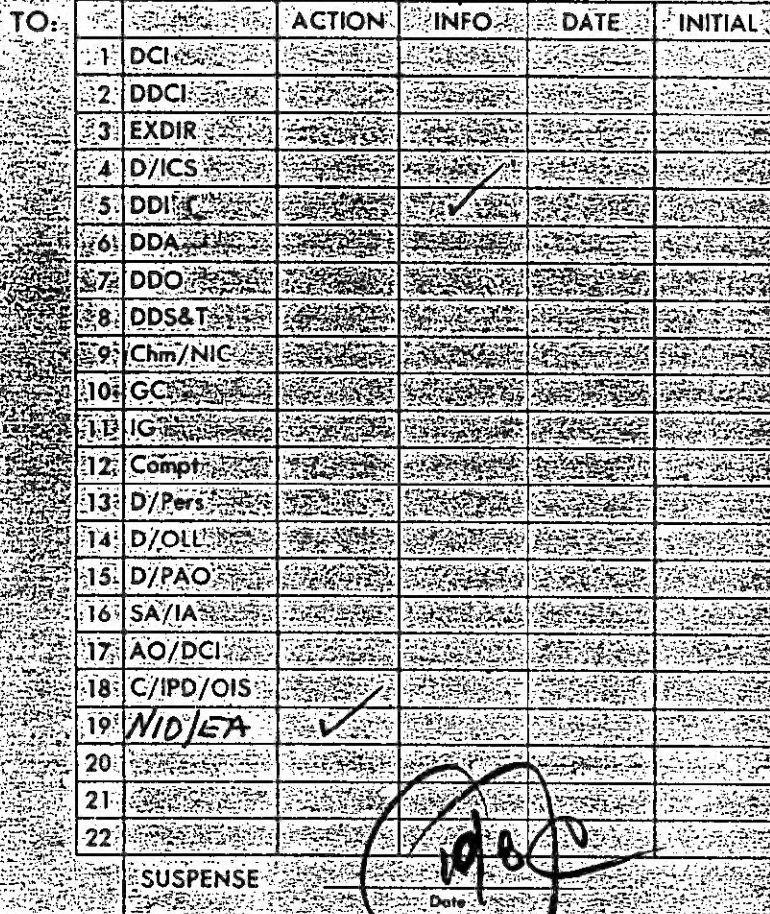 TO: ACTION INFO DATE INITIAL
1 DCI
2 DDCI
3 EXDIR
4 D/ICS
5 DDI ✓
6 DDA
7 DDO
8 DDS&T
9 Chm/NIC
10 GC
11 IG
12 Compt
13 D/Pers
14 D/OLL
15 D/PAO
16 SA/IA
17 AO/DCI
18 C/IPD/OIS
19 NIO/EA ✓
20
21
22
SUSPENSE 10/8
Date